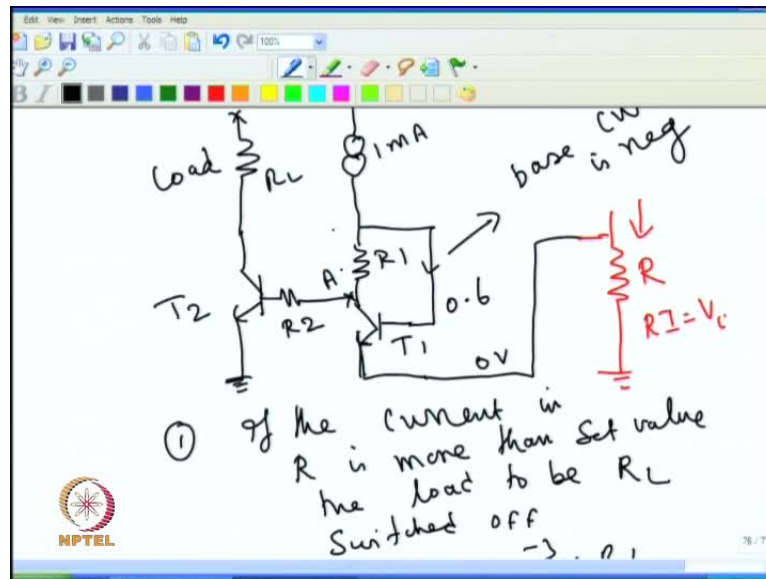 Edit View Insert Actions Tools Help
100%
Load
RL
1mA
base
is neg
A
R1
0.6
T2
R2
T1
0V
R
RI=V
① If the current in
R is more than Set value
the load to be RL
Switched off
NPTEL